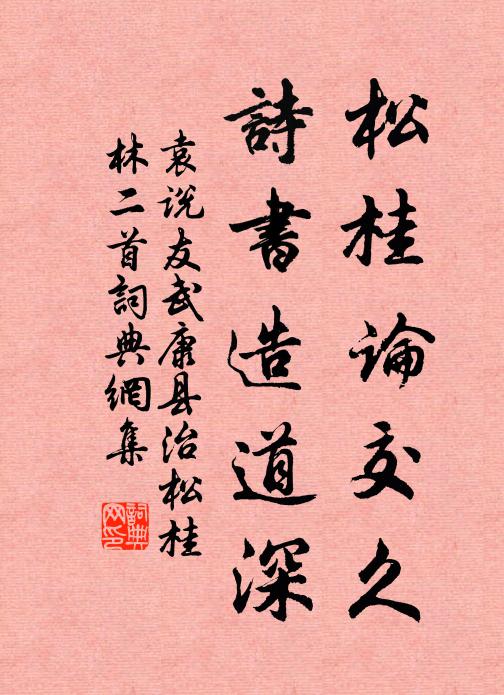 松桂論交久
詩書造道深
袁说友武康县治松桂
林二首詞典網集
詞典
网印